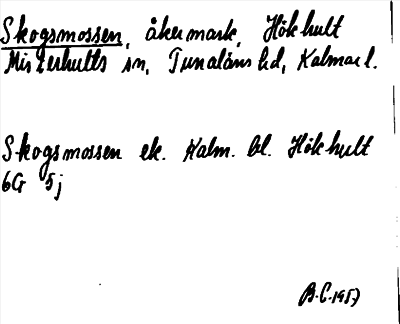 Skogsmossen, åkermark, Hökhult
Misterhults sn, Tunaläns hd, Kalmar l.
Skogsmossen ek. Kalm. bl. Hökhult
6G 5j
B.C. 1957